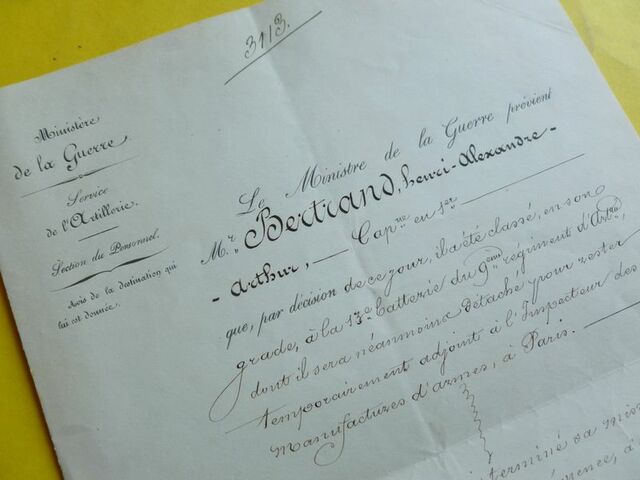 3113.
Ministère
de la Guerre.
Service
de l'Artillerie.
Section du Personnel.
Avis de la destination qui
lui est donnée.
Le Ministre de la Guerre prévient
Mr. Bertrand, henri-Alexandre-
- Arthur, — Capne en 1er —
que, par décision de ce jour, il a été classé, en son
grade, à la 13e batterie du 9eme régiment d'Artrie,
dont il sera néanmoins détaché pour rester
temporairement adjoint à l'Inspecteur des
manufactures d'armes, à Paris. —
terminé sa miss
mence, à